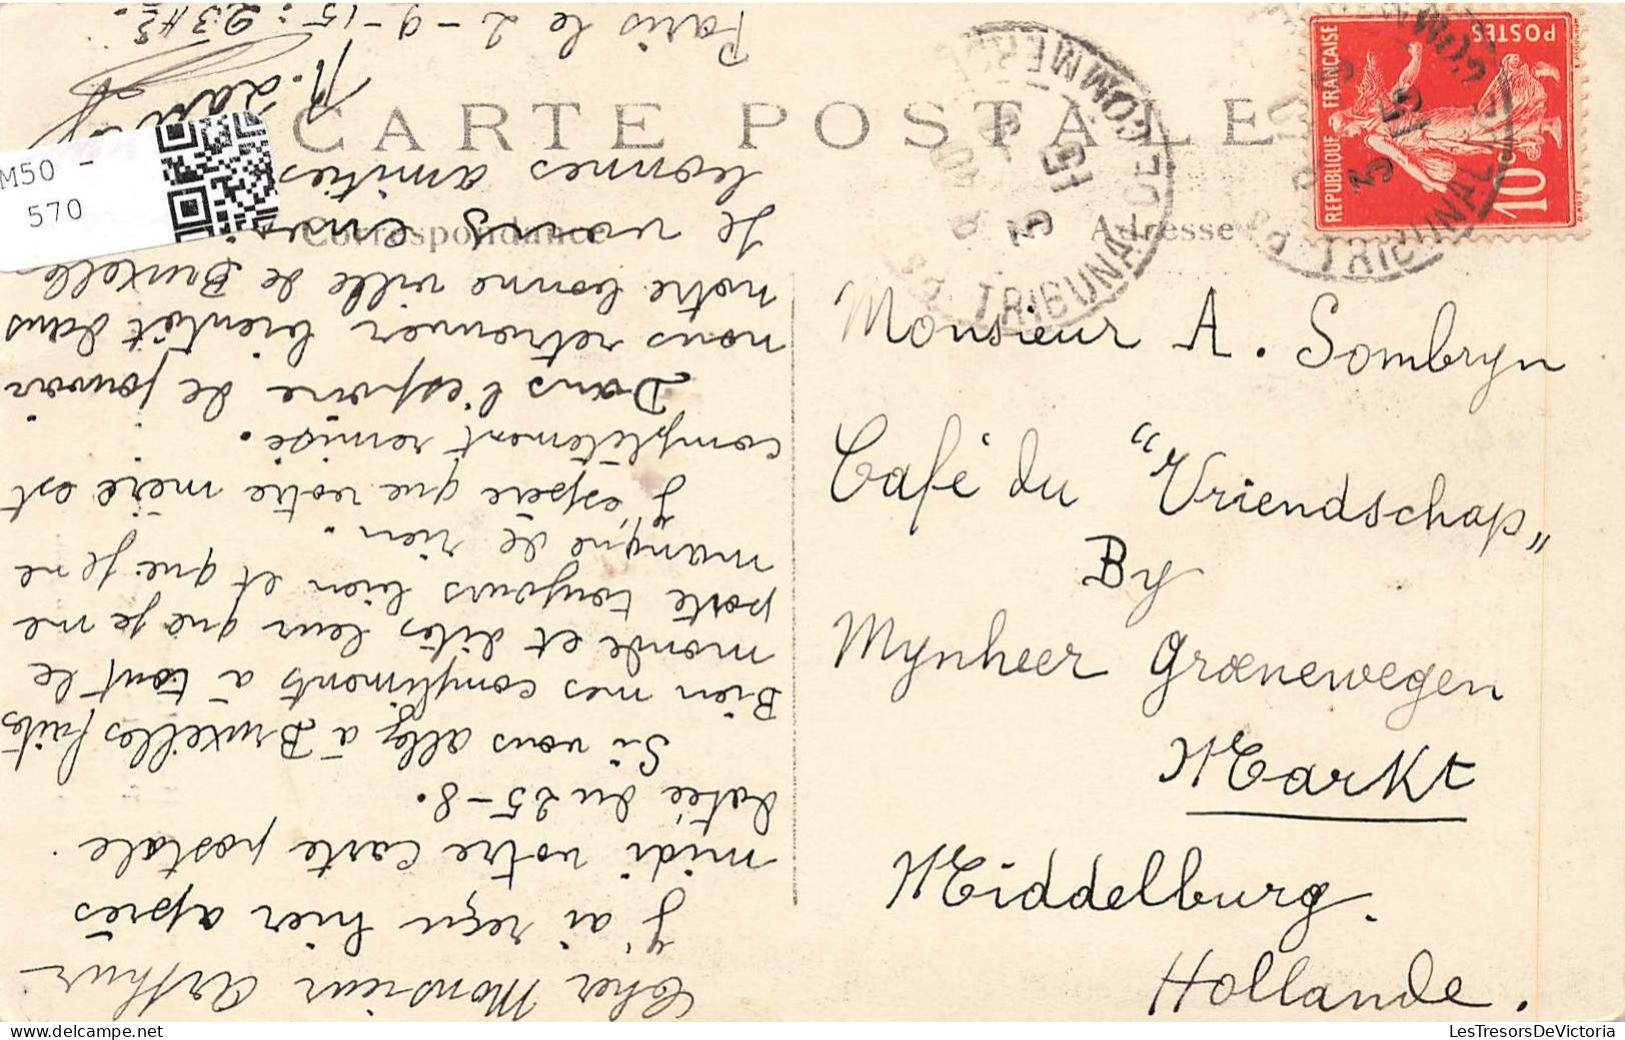 CARTE POSTALE
Correspondance
Adresse
Paris le 2-9-15: 23 H 3/4
Cher Monsieur Arthur
J'ai reçu hier après
midi votre carte postale.
datée du 25-8.
Si vous allez à Bruxelles faites
Bien mes compliments à tout le
monde et dites leur que je me
porte toujours bien et que je ne
manque de rien.
J'espère que votre mère est
complètement remise.
Dans l'espoire de pouvoir
nous retrouver bientôt dans
notre bonne ville de Bruxelle
Je vous envoi
bonnes amitiés
Monsieur A. Sombryn
Café du "Vriendschap"
By
Mynheer Groenewegen
Markt
Middelburg.
Hollande.
REPUBLIQUE FRANÇAISE
POSTES
10c
PL. DU TRIBUNAL DE COMMERCE
3
15
TRIBUNAL
COMM
3
15
M50 -
570
LesTresorsDeVictoria.com